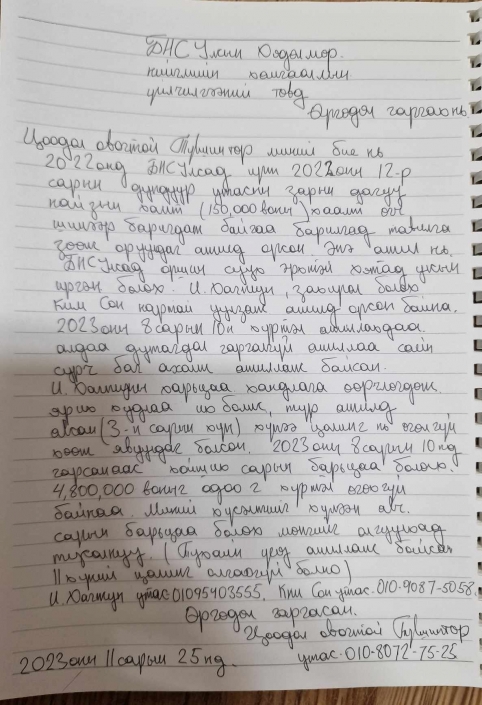 БНСУлсын Хөдөлмөр.
нийгмийн хамгааллын
үйлчилгээний төвд
Өргөдөл гаргах нь.
Цоодол овогтой Түвшинтөр миний бие нь
2022онд БНСУлсад ирж 2022оны 12-р
сарын дундуур утасны зарын дагуу
найзын хамт (150,000 воны) хаалт өгч
шинээр баригдаж байгаа барилгад тавилга
зөөж оруулдаг ажилд орсон. Энэ ажил нь.
БНСУлсад оршин суух эрхтэй хятад улсын
иргэн болох. И. , захирал болох
Ким Сон нартай уулзаж ажилд орсон байна.
2023оны 8 сарын 10н хүртэл ажиллахдаа.
алдаа дутагдал гаргалгүй ажиллаа сайн
сурч бал ахалж ажиллаж байсан.
И. харьцаа хандлага өөрчлөгдөж.
ярих худлаа их болж, түр ажилд
авсан (3-н сарын хүн) хүмээ цалинг нь өгөлгүй
хөөж явуулдаг болсон. 2023оны 8 сарын 10нд
гарсанаас хойших сарын барьцаа болох.
4,800,000 воныг одоо г хүртэл өгөөгүй
байгаа. Миний хүсэлтийг хүлээн авч.
сарын барьцаа болох мөнгийг авхуулахад
тусалнуу. (Тухайн үед ажиллаж байсан
11 хүний цалинг олгоогүй болно)
И. утас 01095403555. Ким Сон утас. 010-9087-5058.
Өргөдөл гаргасан.
Цоодол овогтой Түвшинтөр
2023оны 11 сарын 25нд. утас-010-8072-75-25